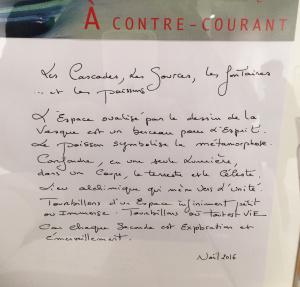 À CONTRE-COURANT
Les Cascades, Les Sources, les fontaines
... et les poissons
L'Espace ovalisé par le dessin de la
Vasque est un berceau pour l'Esprit.
Le poisson symbolise la métamorphose.
Confondre, en une seule Lumière,
dans un Corps, le terrestre et le Céleste.
Lieu alchimique qui mène vers l'unité.
Tourbillons d'un Espace infiniment petit
ou Immense. Tourbillons où tout est VIE
Où chaque Seconde est Exploration et
émerveillement.
2016